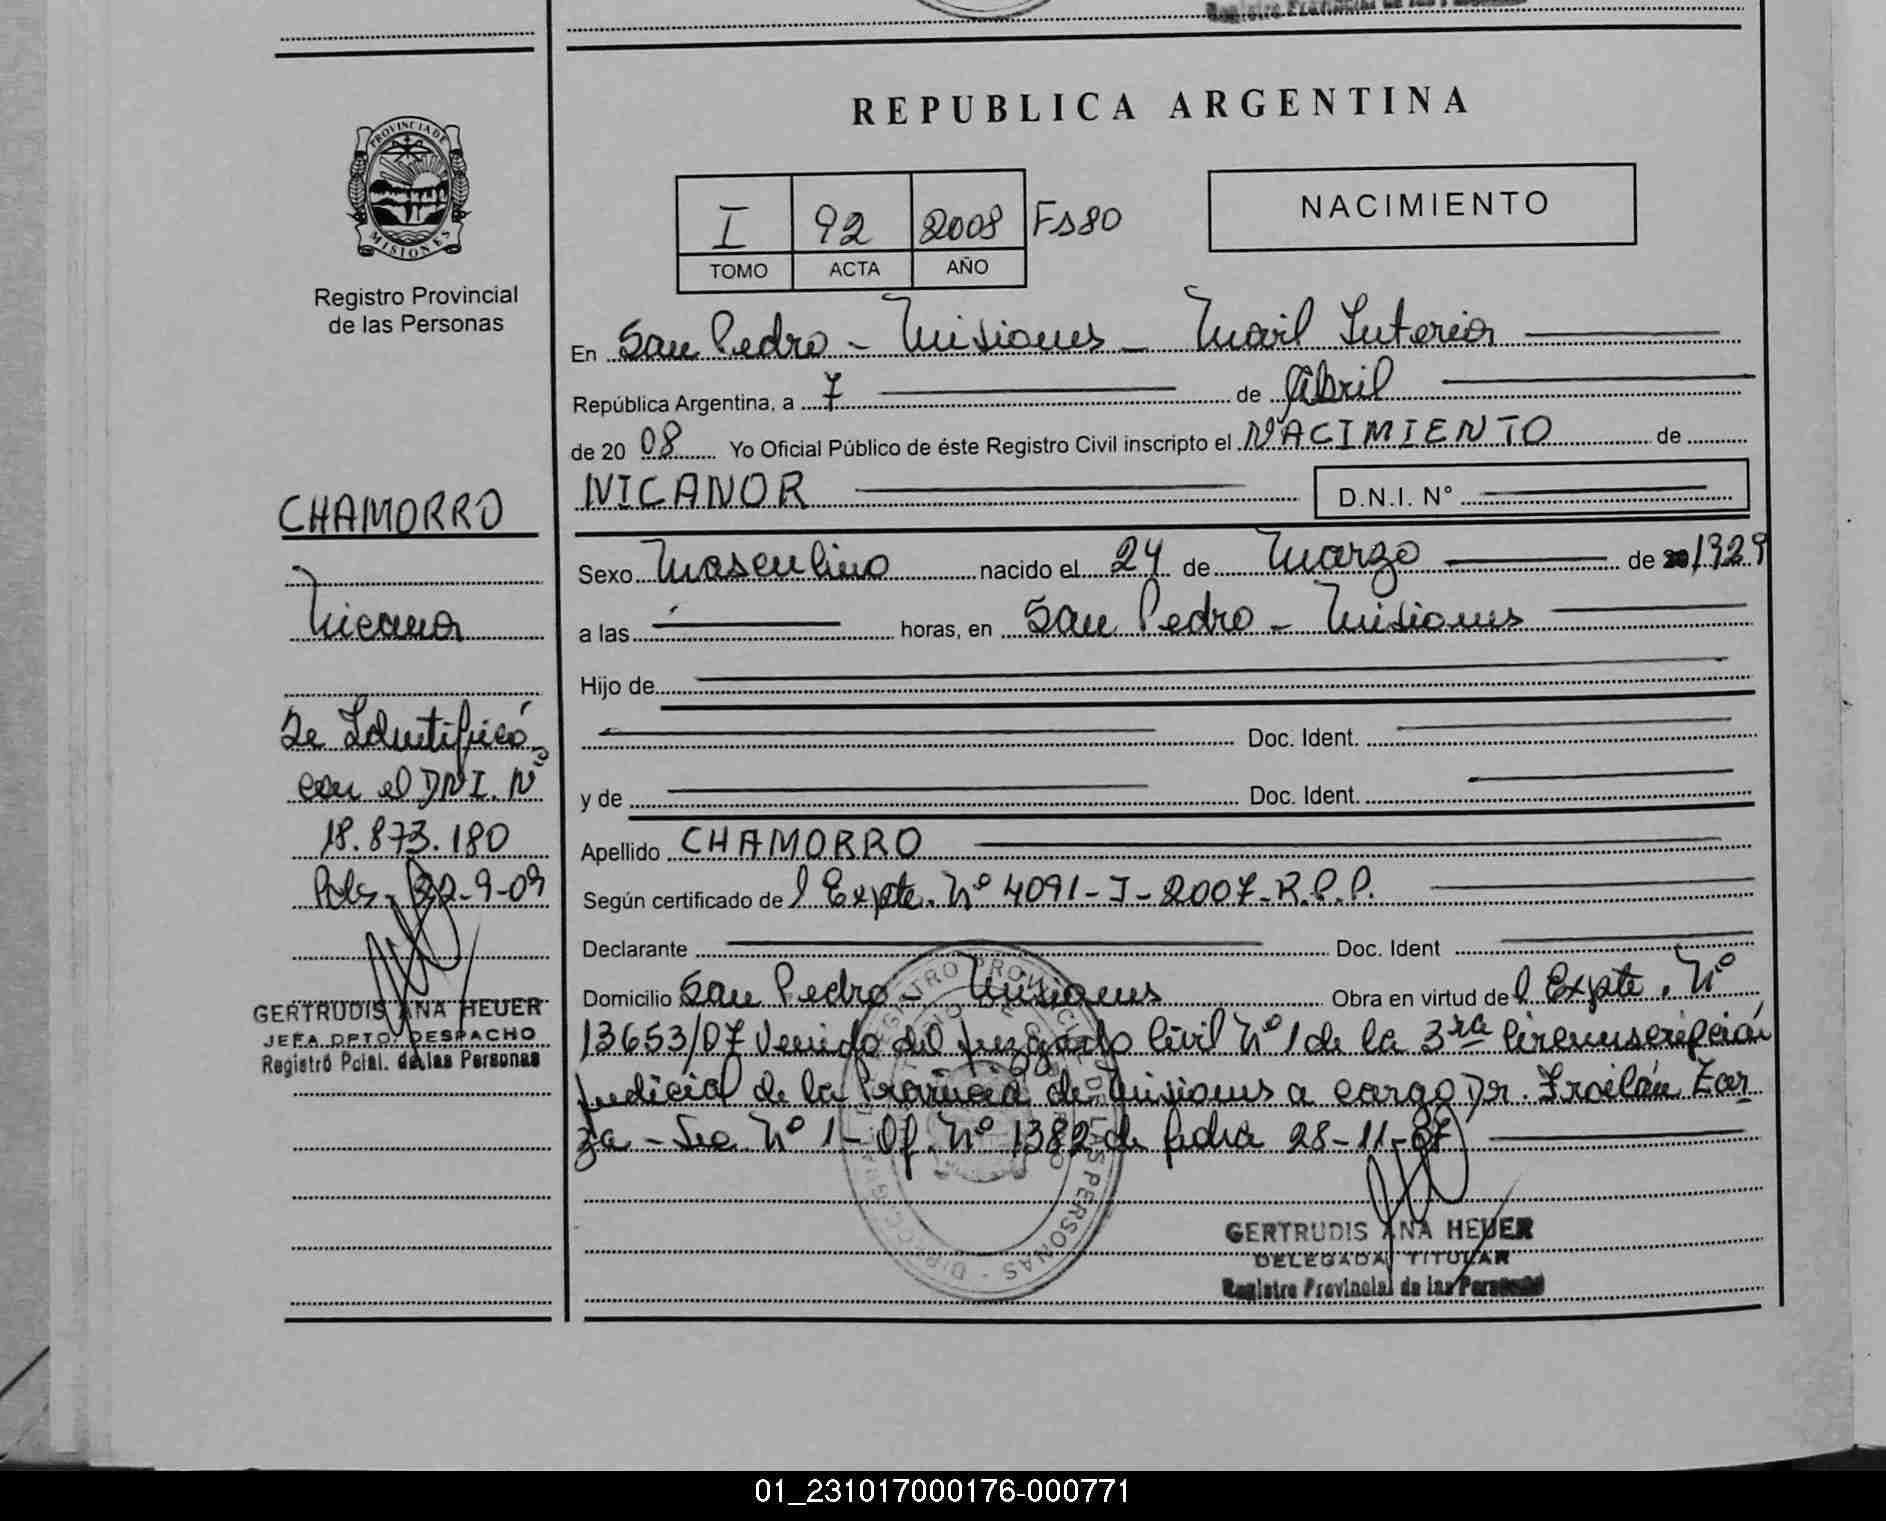 REPUBLICA ARGENTINA
PROVINCIA DE
MISIONES
Registro Provincial
de las Personas
I 92 2008 Fs 80
TOMO ACTA AÑO
NACIMIENTO
En San Pedro - Misiones - Movil Interior
República Argentina, a 7 de Abril
de 20 08 Yo Oficial Público de éste Registro Civil inscripto el NACIMIENTO de
NICANOR D.N.I. N°
Sexo Masculino nacido el 24 de Marzo de 20 1929
a las horas, en San Pedro - Misiones
Hijo de
Doc. Ident.
y de Doc. Ident.
Apellido CHAMORRO
Según certificado de l Expte. Nº 4091-J-2007-R.P.P.
Declarante Doc. Ident
Domicilio San Pedro - Misiones Obra en virtud del Expte. Nº
13653/07 Venido del Juzgado Civil Nº 1 de la 3ra Circunscripción
Judicial de la Provincia de Misiones a cargo Dr. Froilán Zar
za - Sec. Nº 1 - Of. Nº 1382 de fecha 28-11-07
GERTRUDIS ANA HEUER
DELEGADA TITULAR
Registro Provincial de las Personas
CHAMORRO
Nicanor
Se Identificó
con el DNI. Nº
18.873.180
Pdas, 22-9-09
GERTRUDIS ANA HEUER
JEFA DPTO. DESPACHO
Registro Pcial. de las Personas
01_231017000176-000771